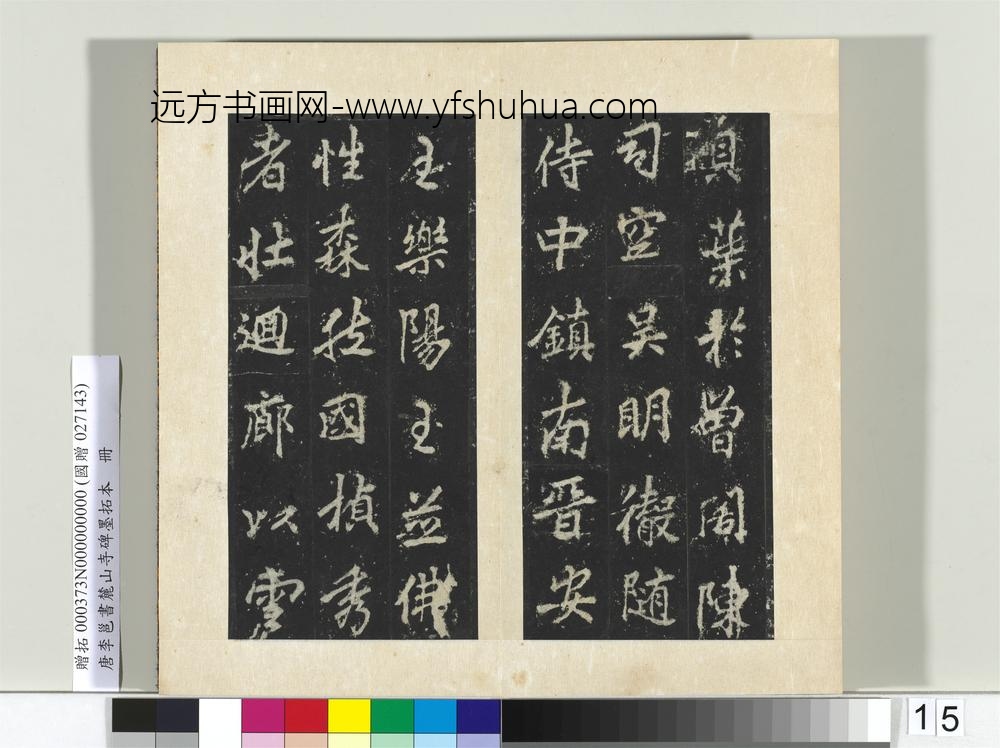 远方书画网-www.yfshuhua.com
填葉於曽周陳
司空吴明徹随
侍中鎮南晋安
王樂陽王並佛
性森然國楨秀
者壮迴廊以雲
贈拓 000373N000000000 (國贈 027143)
唐李邕書麓山寺碑墨拓本 冊
15